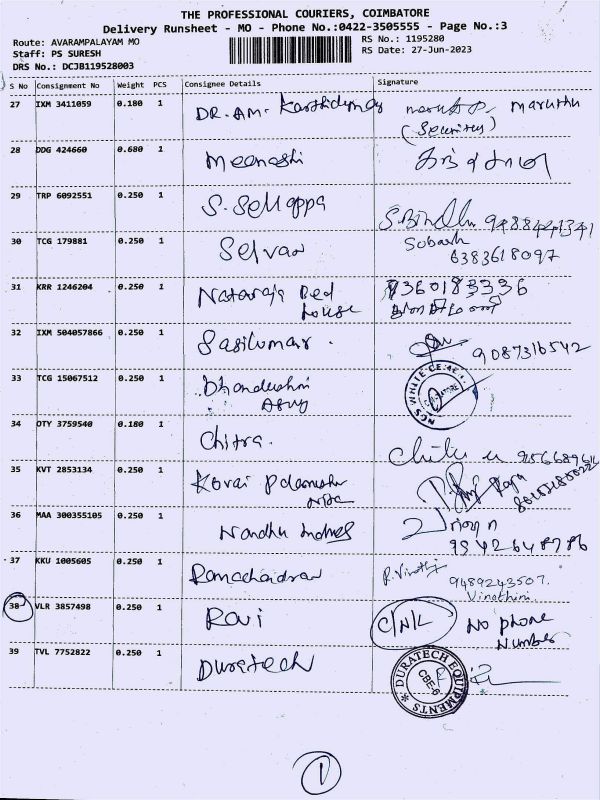 THE PROFESSIONAL COURIERS, COIMBATORE
Delivery Runsheet - MO - Phone No.:0422-3505555 - Page No.:3
Route: AVARAMPALAYAM MO
Staff: PS SURESH
DRS No.: DCJB119528003
RS No.: 1195280
RS Date: 27-Jun-2023
S No Consignment No Weight PCS Consignee Details Signature
27 IXM 3411059 0.180 1 DR. AM. Maruthu
(Security)
28 DDG 424660 0.680 1 Meenashi
29 TRP 6092551 0.250 1 S. Sellappa
30 TCG 179881 0.250 1 Selvan Subash
6383618097
31 KRR 1246204 0.250 1 Nataraja Red House 9360183336
32 IXM 504057866 0.250 1 Sasikumar. 9087316542
33 TCG 15067512 0.250 1
NGS WHITE CEMENT
34 OTY 3759540 0.180 1 Chitra.
35 KVT 2853134 0.250 1 Kovai Raja
36 MAA 300355105 0.250 1 Nandhu
9942648786
37 KKU 1005605 0.250 1 Ramachadran R. Vinothini 9489243507.
Vinothini
38 VLR 3857498 0.250 1 Ravi C/N/L No phone
Number
39 TVL 7752822 0.250 1 Duratech
DURATECH EQUIPMENTS
CBE-6
1